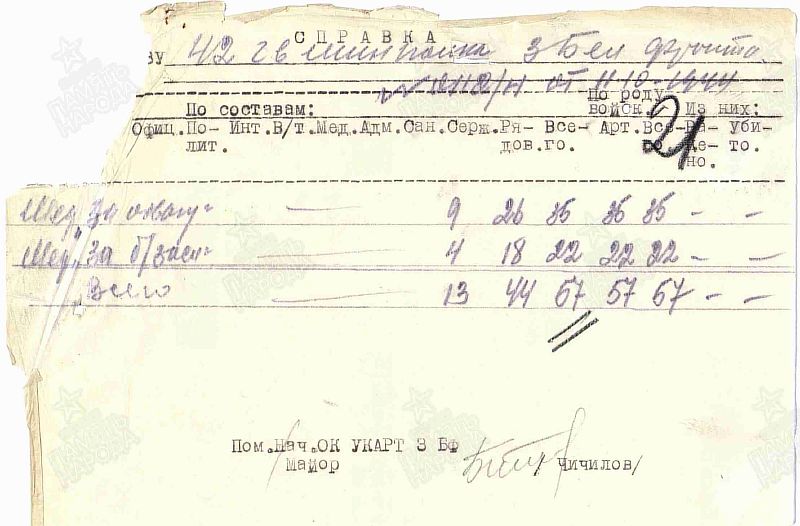 СПРАВКА
ву 42 гв минполка 3 Бел фронта
от 11-10-1944
По роду
По составам: войск. Из них:
Офиц. По- Инт. В/т. Мед. Адм. Сан. Серж. Ря- Все- Арт. Все- Ра- Уби-
лит. дов. го. го. не- то.
но.
21
Мед. "За отвагу" — 9 26 35 35 35 - -
Мед. "За б/засл" — 4 18 22 22 22 - -
Всего — 13 44 57 57 57 - -
Пом. Нач. ОК УКАРТ 3 БФ
Майор / Чичилов/